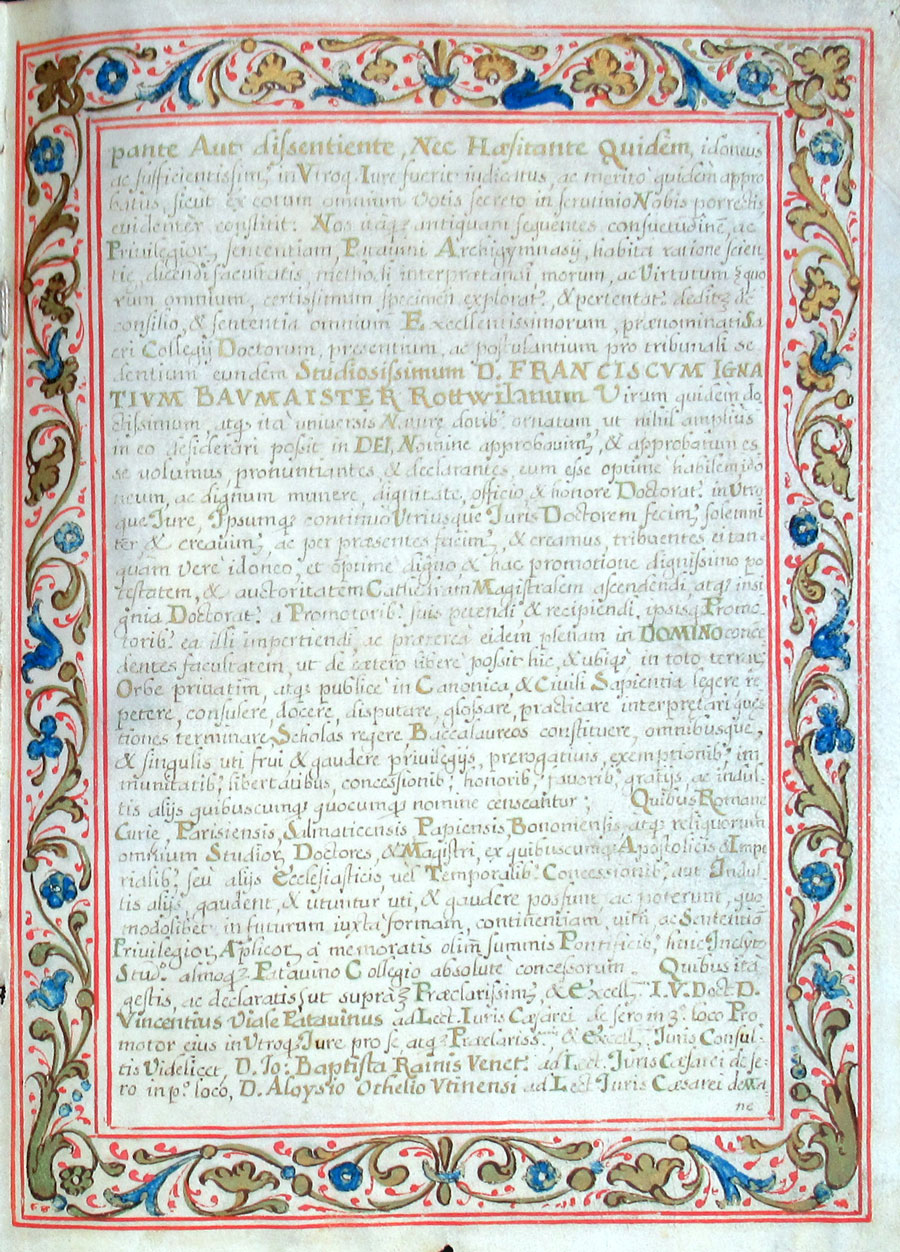 pante Aut dissentiente, Nec Hæsitante Quidem, idoneus
ac sufficientissim9 in Vtroq3 Iure fuerit iudicatus, ac merito quidem appro
batus, sicut ex eorum omnium Votis secreto in scrutinio Nobis porrectis,
euidenter constitit: Nos itaq3 antiquam sequentes consuetudinē ac
Privilegior, sententiam Patauini Archigymnasij, habita ratione scien
tię, dicendi facultatis, methodi interpretandi morum, ac Virtutum q3 quo
rum omnium, certissimum specimen explorat9, & pertentat9 dedit, de
consilio, & sententia omnium Excellentissimorum, prænominati Sa
cri Collegij Doctorum, presentium, ac postulantium pro tribunali se
dentium eundem Studiosissimum D. FRANCISCVM IGNA
TIVM BAVMAISTER Rottwilanum Virum quidem do
ctissimum, atq3 ità universis Naturę dotib9 ornatum ut nihil amplius
in eo desiderari possit in DEI, Nomine approbauim9, & approbatum es
se volumus, pronuntiantes & declarantes eum esse optime habilem ido
neum, ac dignum munere, dignitate, officio, & honore Doctorat9 in Vtro
que Jure, Ipsumq3 continuo Vtriusque Juris Doctorem fecim9 solemni
ter & creauim9, ac per præsentes facim9, & creamus, tribuentes ei tan
quam vere idoneo, et optime digno, & hac promotione dignissimo po
testatem, & auctoritatem Cathedram Magistralem ascendendi, atq3 insi
gnia Doctorat9 a Promotorib9 suis petendi, & recipiendi, ipsisq3 Promo
torib9 ea illi impertiendi, ac præterea eidem plenam in DOMINO conce
dentes facultatem, ut de cætero libere possit hic, & ubiq3 in toto terrar
Orbe priuatim, atq3 publicè in Canonica, & Civili Sapientia legere, re
petere, consulere, docere, disputare, glossare, practicare interpretari quęs
tiones terminare Scholas regere, Baccalaureos constituere, omnibusque,
& singulis uti frui & gaudere privilegijs, prerogatiuis, exemptionib9 im
munitatib9 libertatibus, concessionib9 honorib9 fauorib9 gratijs ac indul
tis alijs quibuscunq3 quocumq3 nomine censeantur; Quibus Romanę
Curię, Parisiensis, Salmaticensis Papiensis, Bononiensis atq3 reliquorum
omnium Studior, Doctores, & Magistri, ex quibuscunq3 Apostolicis & Impe
rialib9 seu alijs Ecclesiasticis, vel Temporalib9 Concessionib9 aut Indul
tis alijs, gaudent, & utuntur uti, & gaudere possunt ac poterunt, quo
modolibet in futurum iuxta formam, continentiam, uim, ac Sententiā
Privilegior, Aplicor, à memoratis olim summis Pontificib9 huic Inclyto
Stud9 almoq3 Patauino Collegio absolutè concessorum. Quibus ità
gestis, ac declaratis, ut supra; Præclarissim9, & Excell9 I. V. Doct. D.
Vincentius Viale Patauinus ad Lect. Iuris Cæsarei de sero in 3º loco Pro
motor eius in Vtroq3 Jure pro se atq3 Præclariss: & Excell: Juris Consul
tis Videlicet, D. Jo: Baptista Rainis Venet9 ad Lect. Juris Cæsarei de se
ro in pº loco, D. Aloysio Othelio Vtinensi ad Lect. Juris Cæsarei de Ma
ne